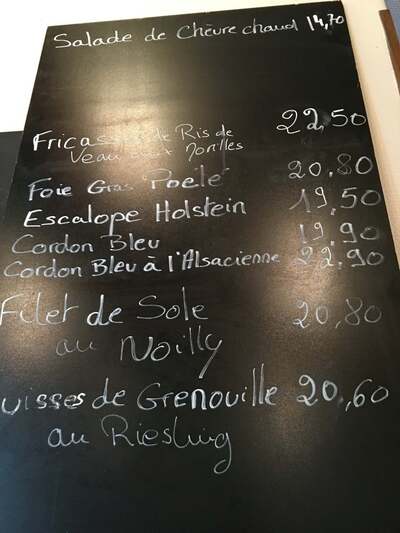 Salade de Chèvre chaud 14,70
Fricassée de Ris de 22,50
Veau aux Morilles
Foie Gras Poêlé 20,80
Escalope Holstein 19,50
Cordon Bleu 19,90
Cordon Bleu à l'Alsacienne 22,90
Filet de Sole 20,80
au Noilly
uisses de Grenouille 20,60
au Riesling